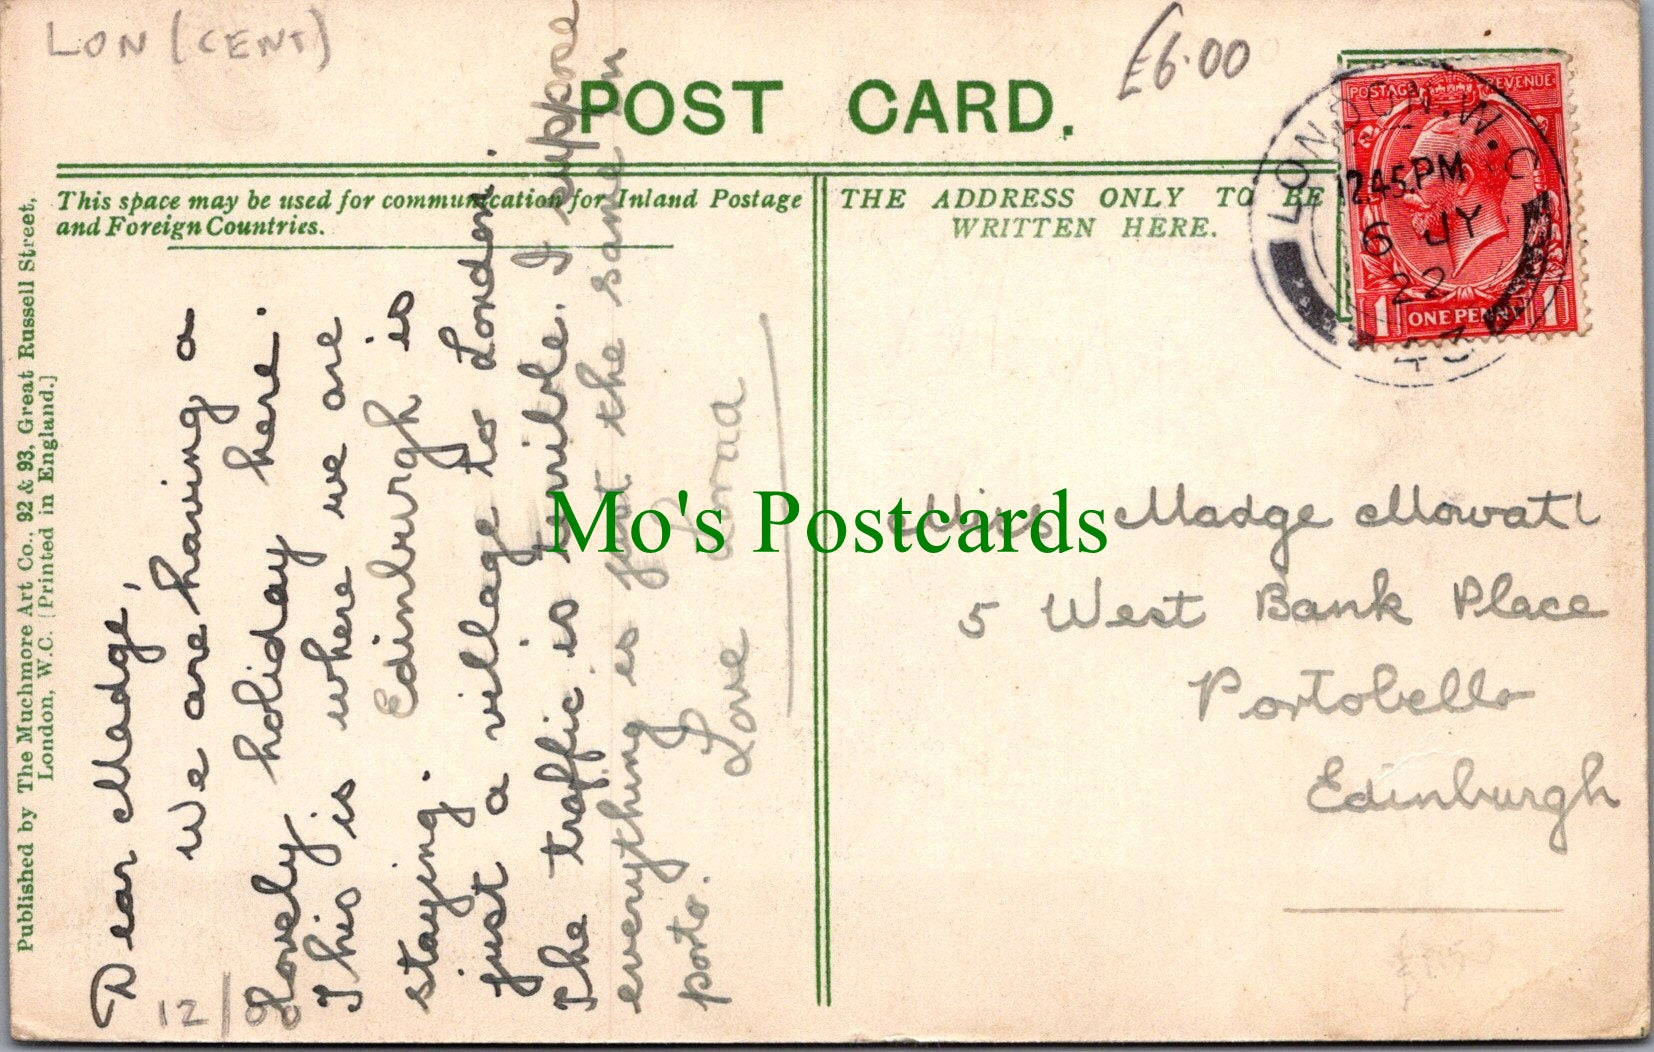 LON (CENT)
£6.00
POST CARD.
This space may be used for communication for Inland Postage
and Foreign Countries.
THE ADDRESS ONLY TO BE
WRITTEN HERE.
POSTAGE REVENUE
ONE PENNY
1 1
LONDON.W.C
12.45.PM
6 JY
22
Published by The Muchmore Art Co., 92 & 93, Great Russell Street,
London, W.C. [Printed in England.]
Dear Madge,
We are having a
lovely holiday here.
This is where we are
staying. Edinburgh is
just a village to London.
The traffic is terrible. I suppose
everything is just the same in
porto.
Love
Miss Madge Mowatt
5 West Bank Place
Portobello
Edinburgh
12/
Mo's Postcards